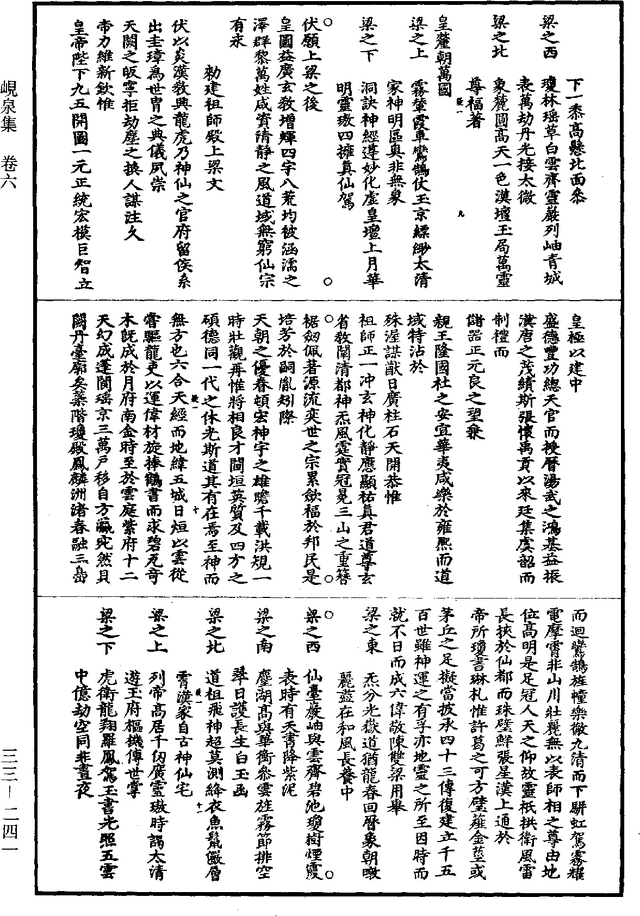 下一黍高懸北面忝
梁之西　瓊林瑶草白雲齊靈巖列岫青城
表萬劫丹光接太微
梁之北　象麓圓高天一色漢壇玉局萬靈
尊福著
皇釐朝萬國
梁之上　霧輦霞車鸞鶴仗玉京縹緲太清
家神明區奥非無象
梁之下　洞訣神經遵妙化虛皇壇上月華
明靈璈四擁真仙駕
伏願上梁之後
皇圖益廣玄教增輝四字八荒均被涵濡之
澤群黎萬姓咸資清静之風道域無窮仙宗
有永
勑建祖師殿上梁文
伏以炎漢敎興龍虎乃神仙之官府留侯系
出圭璋為世胄之典儀夙崇
天闕之皈寕拒劫塵之換人謀注久
帝力維新欽惟
皇帝陛下九五開圖一元正統宏模巨智立
皇極以建中
盛德豐功總天官而授曆湯武之鴻基益振
漢唐之茂績斯張懷禹貢以來廷集虞韶而
制禮而
儲器正元良之望乗
親王隆國社之安宣華夷咸樂於雍熙而道
域特沾於
殊渥謀猷日廣柱石天開恭惟
祖師正一冲玄神化静應顯祐真君道尊玄
省教闡清都神炁風霆實冠冕三山之重簪
裾劒佩著源流奕世之宗累歛福於邦民是
培芳於嗣胤矧際
天朝之優眷頓宏神宇之雄瞻千載洪規一
時壯觀再惟將相良才閫垣英質及四方之
碩德同一代之休光斯道其有在焉至神而
無方也六合天經而地緯五城日烜以雲從
嘗驅龍吏以運偉材旋捧鶴書而求碧瓦奇
木旣成於月府南金時至於雲庭紫府十二
天幻成蓬閬瑶京三萬戸移自方瀛宛然貝
闕丹臺廓矣蘂階瓊殿鳳麟洲渚春融三島
而迴鸞鶴旌幢樂徹九清而下駢虹駕霧耀
電摩霄非山川壯麗無以表師相之尊由地
位高明是足冠人天之仰故靈祇拱衛風雷
長挾於仙都而珠璧鮮張星漢上通於
帝所瓊書琳札惟許葛之可方璧薤金莖或
茅丘之足擬當披承四十三傳復建立千五
百世雖神運之有孚亦地靈之所至因時而
就不日而成六偉敬陳雙梁用舉
梁之東　炁分光嶽道猶龍春回曆象朝暾
麗藍在和風長養中
梁之西　仙臺巖岫與雲齊碧池瓊樹煙霞
表時有天書降紫泥
梁之南　塵湖高與華衡叅雲旌霧節排空
翠日護長生白玉函
梁之北　道祖飛神超莫測絳衣魚鬛儼層
霄漢家自古神仙宅
梁之上　列帝高居千仭廣靈璈時謁太清
遊玉府樞機傳世掌
梁之下　虎衛龍翔羅鳳駕玉書光照五雲
中億劫空同非晝夜
峴泉集　卷六
三三—二四一